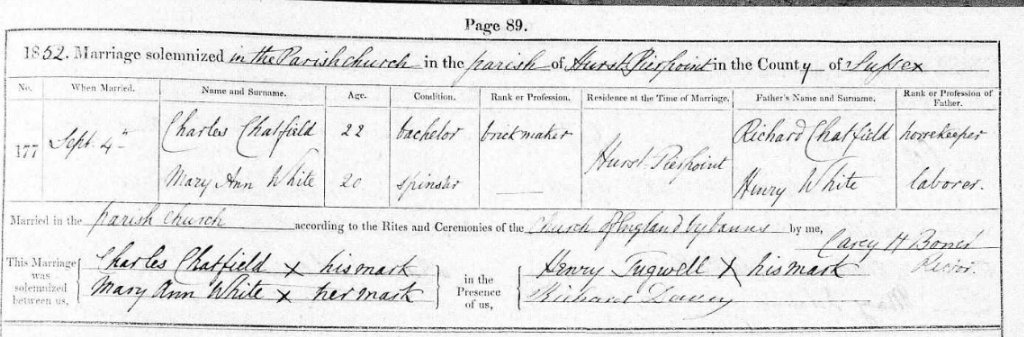 Page 89.
1852. Marriage solemnized in the Parish church in the parish of Hurst Pierpoint in the County of Sussex
No. When Married. Name and Surname. Age. Condition. Rank or Profession. Residence at the Time of Marriage. Father's Name and Surname. Rank or Profession of Father.
177 Sept. 4th Charles Chatfield 22 bachelor brickmaker Hurst Pierpoint Richard Chatfield horsekeeper
Mary Ann White 20 spinster Henry White laborer.
Married in the parish church according to the Rites and Ceremonies of the Church of England by banns by me,
Carey H Rector.
This Marriage was solemnized between us, Charles Chatfield X his mark in the Presence of us, Henry Tugwell X his mark
Mary Ann White X her mark Richard Davey